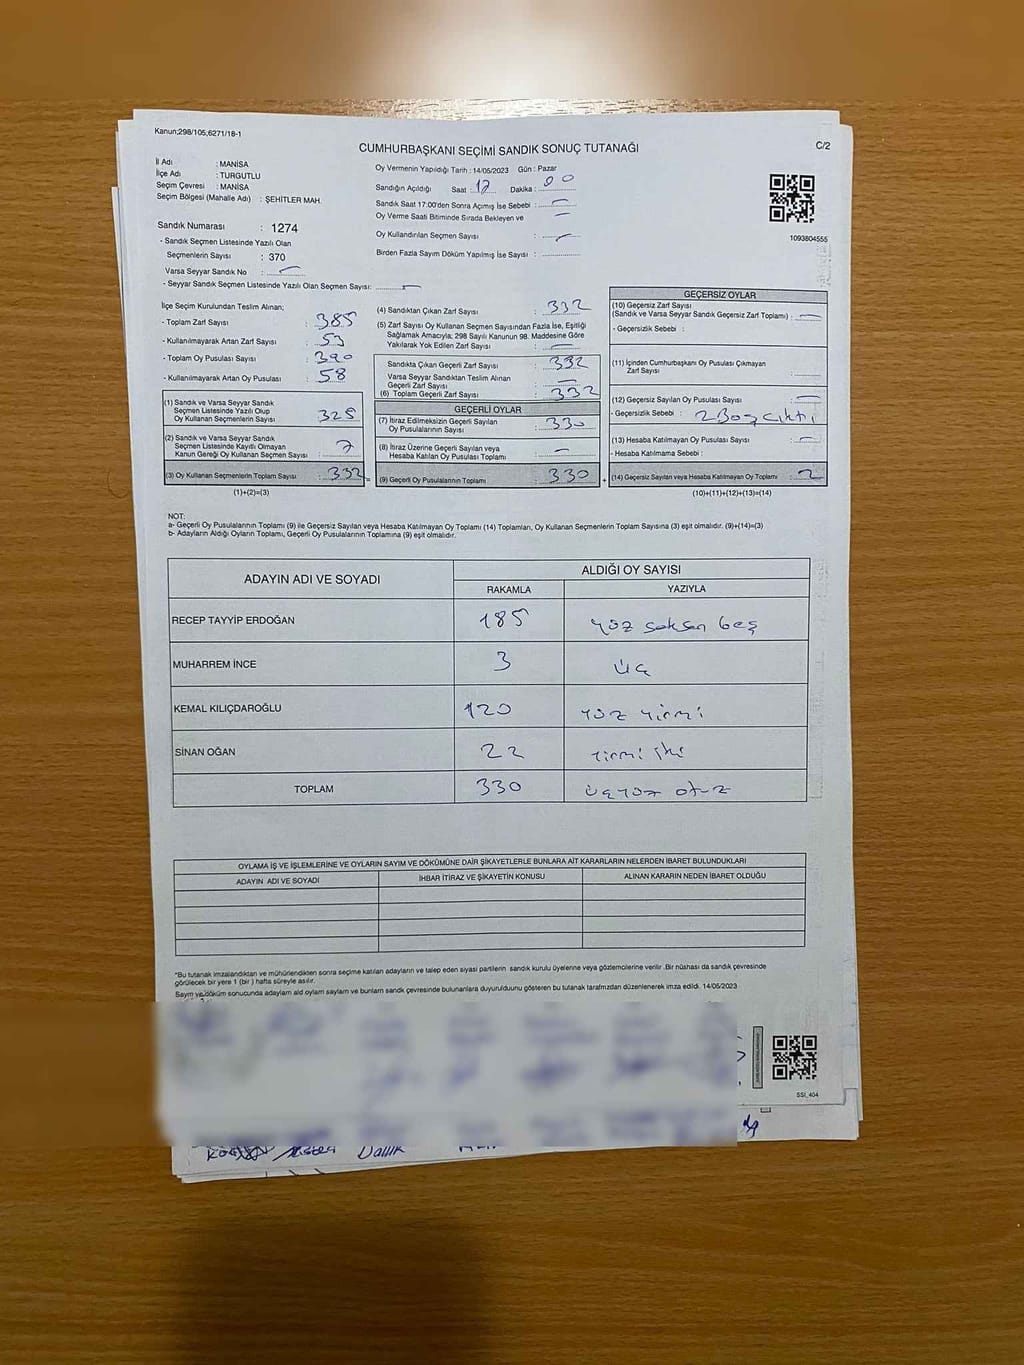 Kanun;298/105;6271/18-1
CUMHURBAŞKANI SEÇİMİ SANDIK SONUÇ TUTANAĞI
C/2
İl Adı : MANİSA
İlçe Adı : TURGUTLU
Seçim Çevresi : MANİSA
Seçim Bölgesi (Mahalle Adı) : ŞEHİTLER MAH.
Sandık Numarası : 1274
- Sandık Seçmen Listesinde Yazılı Olan
Seçmenlerin Sayısı : 370
Varsa Seyyar Sandık No : —
- Seyyar Sandık Seçmen Listesinde Yazılı Olan Seçmen Sayısı: —
Oy Vermenin Yapıldığı Tarih : 14/05/2023 Gün : Pazar
Sandığın Açıldığı Saat : 17 Dakika : 00
Sandık Saat 17.00'den Sonra Açımış İse Sebebi : —
Oy Verme Saati Bitiminde Sırada Bekleyen ve —
Oy Kullandırılan Seçmen Sayısı : —
Birden Fazla Sayım Döküm Yapılmış İse Sayısı :
1093804555
İlçe Seçim Kurulundan Teslim Alınan;
- Toplam Zarf Sayısı : 385
- Kullanılmayarak Artan Zarf Sayısı : 53
- Toplam Oy Pusulası Sayısı : 390
- Kullanılmayarak Artan Oy Pusulası : 58
(1) Sandık ve Varsa Seyyar Sandık
Seçmen Listesinde Yazılı Olup
Oy Kullanan Seçmenlerin Sayısı : 325
(2) Sandık ve Varsa Seyyar Sandık
Seçmen Listesinde Kayıtlı Olmayan
Kanun Gereği Oy Kullanan Seçmen Sayısı : 7
(3) Oy Kullanan Seçmenlerin Toplam Sayısı : 332
(1)+(2)=(3)
(4) Sandıktan Çıkan Zarf Sayısı : 332
(5) Zarf Sayısı Oy Kullanan Seçmen Sayısından Fazla İse, Eşitliği
Sağlamak Amacıyla; 298 Sayılı Kanunun 98. Maddesine Göre
Yakılarak Yok Edilen Zarf Sayısı : —
Sandıkta Çıkan Geçerli Zarf Sayısı : 332
Varsa Seyyar Sandıktan Teslim Alınan
Geçerli Zarf Sayısı : —
(6) Toplam Geçerli Zarf Sayısı : 332
GEÇERLİ OYLAR
(7) İtiraz Edilmeksizin Geçerli Sayılan
Oy Pusulalarının Sayısı : 330
(8) İtiraz Üzerine Geçerli Sayılan veya
Hesaba Katılan Oy Pusulası Toplamı : —
(9) Geçerli Oy Pusulalarının Toplamı : 330
GEÇERSİZ OYLAR
(10) Geçersiz Zarf Sayısı
(Sandık ve Varsa Seyyar Sandık Geçersiz Zarf Toplamı) : —
- Geçersizlik Sebebi :
(11) İçinden Cumhurbaşkanı Oy Pusulası Çıkmayan
Zarf Sayısı :
(12) Geçersiz Sayılan Oy Pusulası Sayısı : —
- Geçersizlik Sebebi : 2 Boş çıktı
(13) Hesaba Katılmayan Oy Pusulası Sayısı : —
- Hesaba Katılmama Sebebi :
(14) Geçersiz Sayılan veya Hesaba Katılmayan Oy Toplamı : 2
(10)+(11)+(12)+(13)=(14)
NOT:
a- Geçerli Oy Pusulalarının Toplamı (9) ile Geçersiz Sayılan veya Hesaba Katılmayan Oy Toplamı (14) Toplamları, Oy Kullanan Seçmenlerin Toplam Sayısına (3) eşit olmalıdır. (9)+(14)=(3)
b- Adayların Aldığı Oyların Toplamı, Geçerli Oy Pusulalarının Toplamına (9) eşit olmalıdır.
ADAYIN ADI VE SOYADI
ALDIĞI OY SAYISI
RAKAMLA YAZIYLA
RECEP TAYYİP ERDOĞAN 185 yüz seksen beş
MUHARREM İNCE 3 üç
KEMAL KILIÇDAROĞLU 120 yüz yirmi
SİNAN OĞAN 22 yirmi iki
TOPLAM 330 üçyüz otuz
OYLAMA İŞ VE İŞLEMLERİNE VE OYLARIN SAYIM VE DÖKÜMÜNE DAİR ŞİKAYETLERLE BUNLARA AİT KARARLARIN NELERDEN İBARET BULUNDUKLARI
ADAYIN ADI VE SOYADI İHBAR İTİRAZ VE ŞİKAYETİN KONUSU ALINAN KARARIN NEDEN İBARET OLDUĞU
*Bu tutanak imzalandıktan ve mühürlendikten sonra seçime katılan adayların ve talep eden siyasi partilerin sandık kurulu üyelerine veya gözlemcilerine verilir .Bir nüshası da sandık çevresinde
görülecek bir yere 1 (bir ) hafta süreyle asılır.
Sayım ve döküm sonucunda adayların aldığı oyların sayıları ve bunların sandık çevresinde bulunanlara duyurulduğunu gösteren bu tutanak tarafımızdan düzenlenerek imza edildi. 14/05/2023
SSI_404